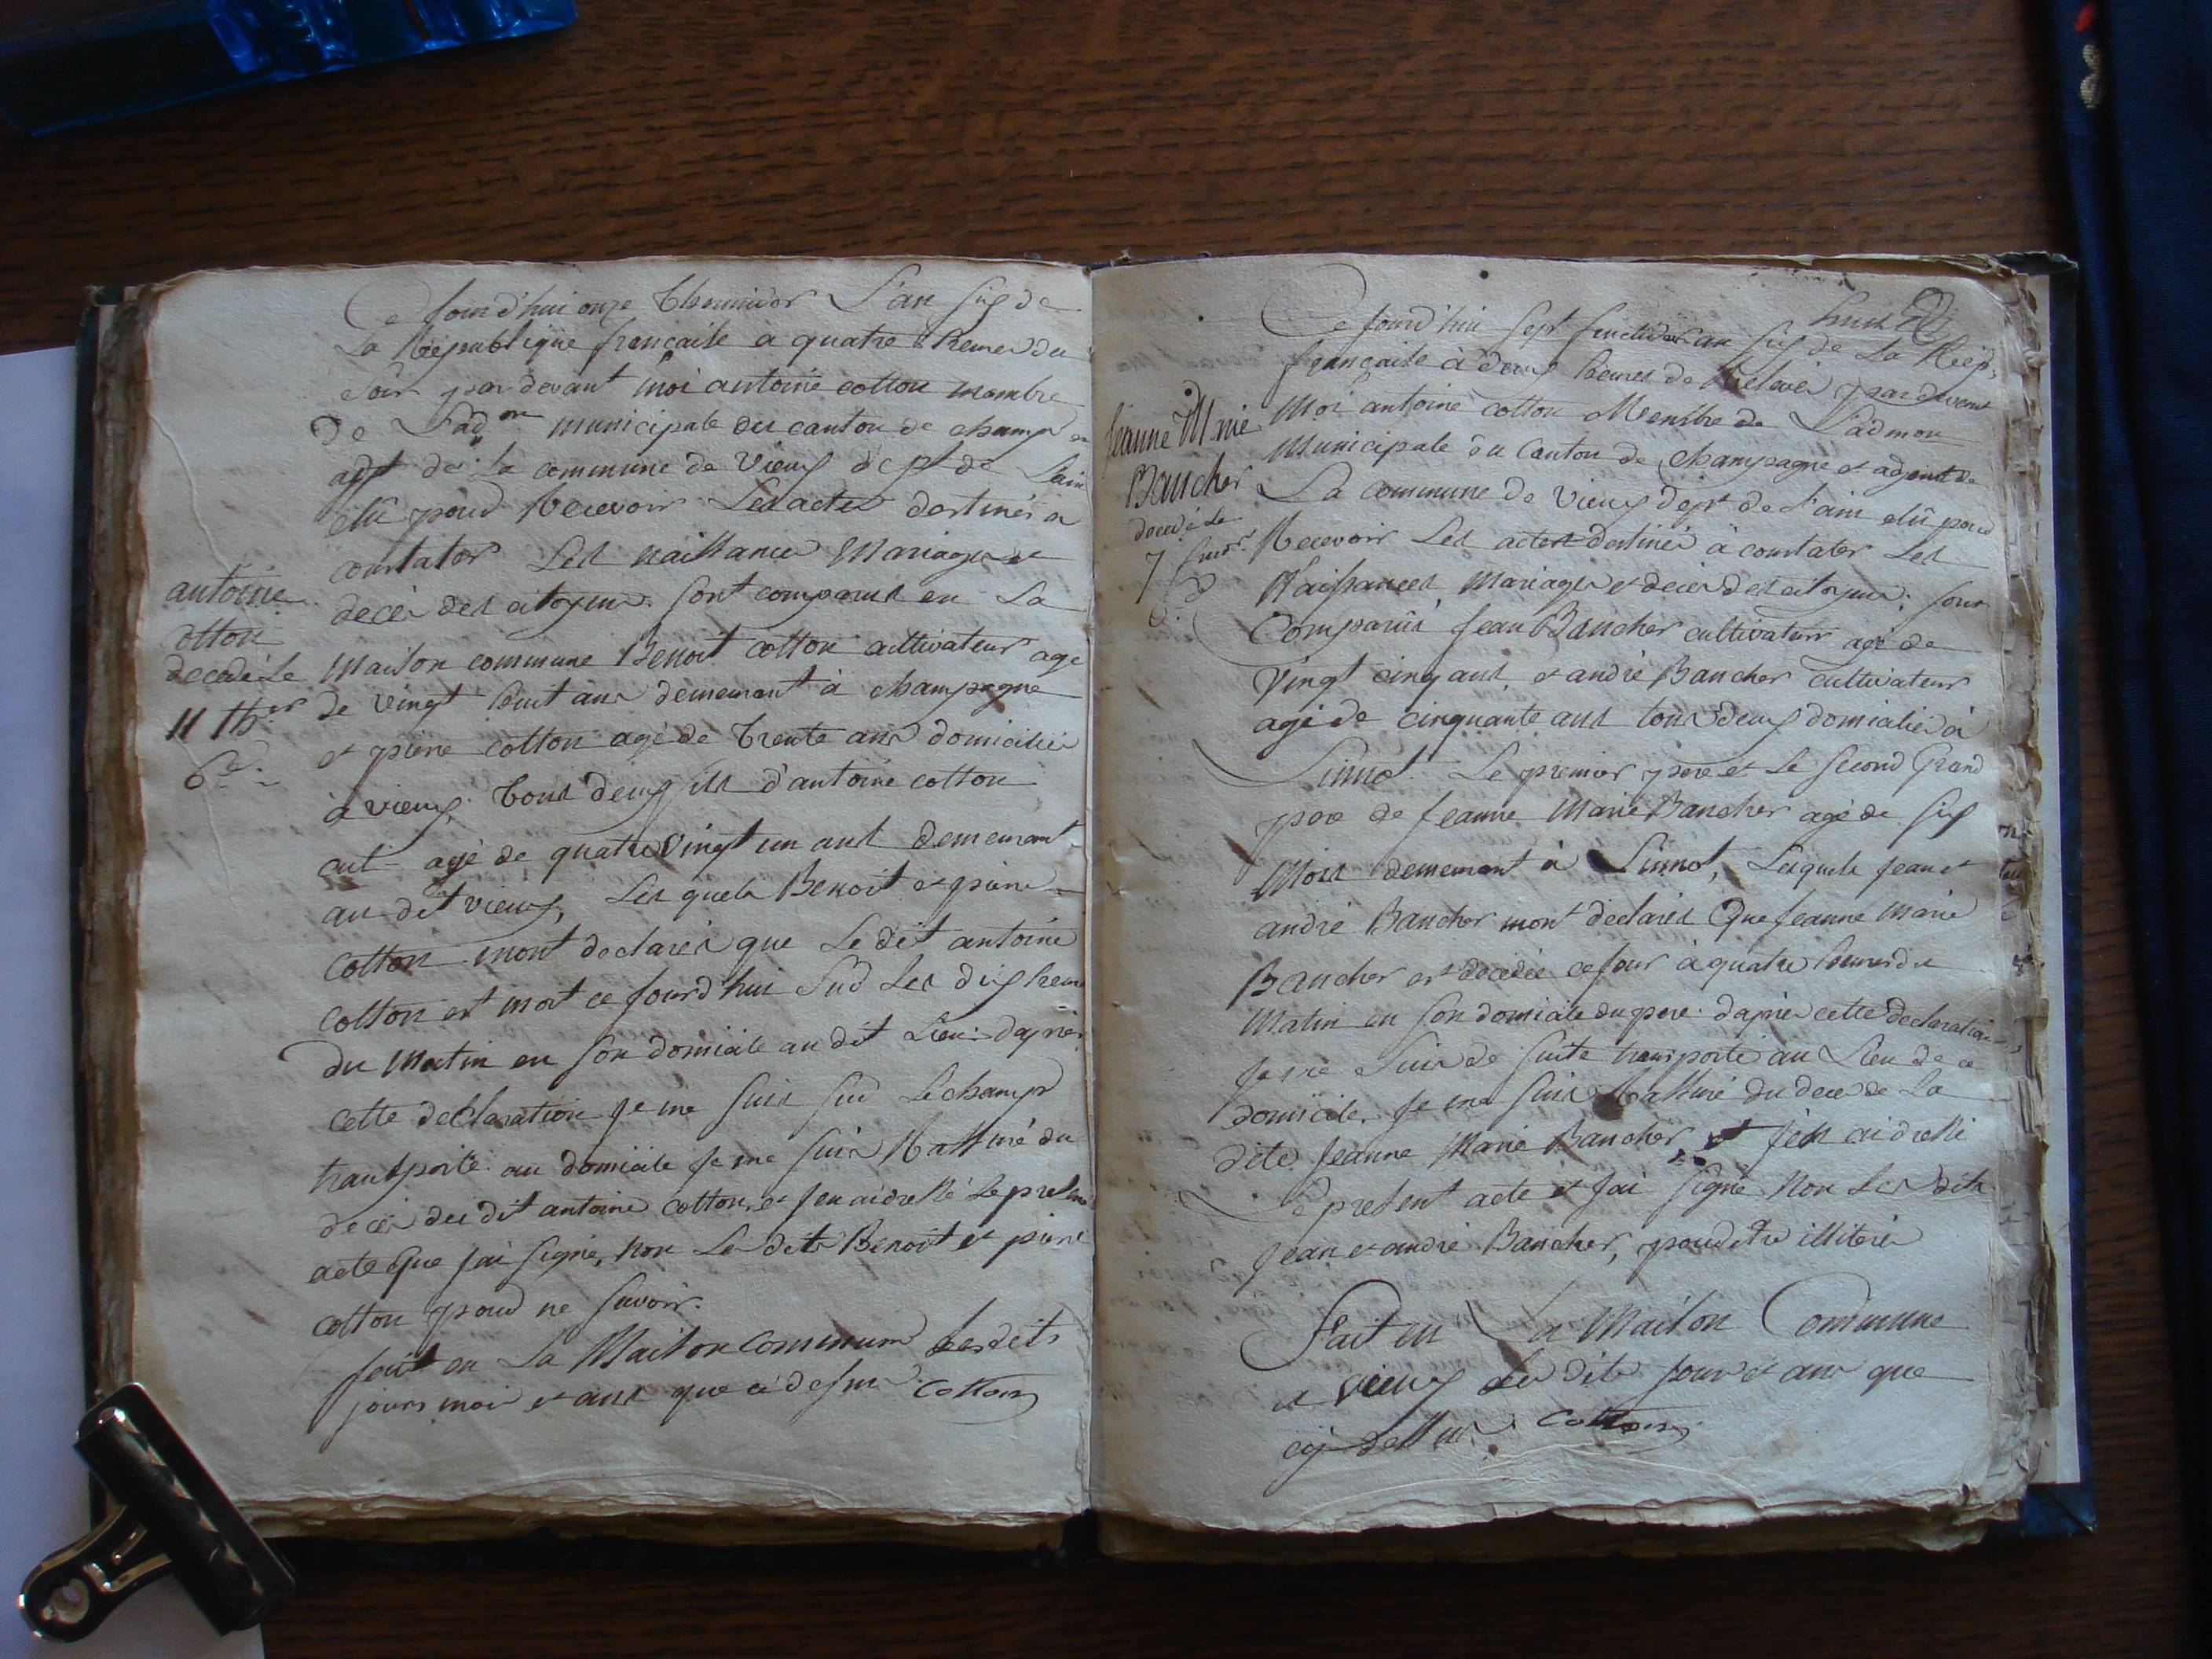 Ce jourd'hui onze thermidor L'an six de
La République françaite a quatre heures du
soir par devant moi antoine cotton membre
De L'ad.on municipale du canton de champ.ne
agt de la commune de Vieux dept de Lain
élu pour Recevoir Les actes destinés a
constater Les naissances Mariages et
decès des citoyens. sont comparus en La
Maison commune Benoit cotton cultivateur agé
de vingt huit ans demeurant à champagne
et pierre cotton agé de trente ans domicilié
à vieux, tous deux fils d'antoine cotton
cult agé de quatre Vingt un ans demeurant
au dit vieux, Les quels Benoit et pierre
cotton mont declarés que Le dit antoine
cotton est mort ce jourd'hui sur Les dix heures
du Matin en son domicile au dit Lieu. daprès
cette declaration je me suis sur Le champ
transporté au domicile je me suis Rassuré du
decès du dit antoine cotton, et jen ai dressé Le present
acte que jai signé, non Les dits Benoit et pierre
cotton pour ne savoir.
fait en La Maison commune Les dits
jours mois et ans que ci dessus Cotton
antoine
Cotton
decedé Le
11 th.or
6.e
huit
Ce jourd'hui sept fructidor an six de La Rép.
françaite à deux heures de Relevée par devant
Moi antoine cotton Membre de L'admon
Municipale du Canton de champagne et agent de
La commune de Vieux dépt de l'ain élû pour
Recevoir Les actes destinés à constater Les
Naissances, Mariages et decès des citoyens; sont
Comparûs jean Bancher cultivateur agé de
Vingt cinq ans, et andré Bancher cultivateur
agé de cinquante ans tous deux domiciliés à
Linnod Le premier pere et Le second Grand
pere de jeanne Marie Bancher agé de six
Mois demeurant à Linnod, Lesquels jean et
andré Bancher mont declarés que jeanne Marie
Bancher est decedée ce jour à quatre heures du
Matin en son domicile du pere. daprès cette declaration
je me suis de suite transporté au Lieu de ce
domicile. je me suis Rassuré du decès de La
dite jeanne Marie Bancher et j'en ai dressé
Le present acte et jai signé non Les dits
jean et andré Bancher, pour être illiterés
Fait en La Maison Commune
a vieux Les dits jour et ans que
cy dessus. Cotton
jeanne M.rie
Bancher
decedé Le
7 fruct.or